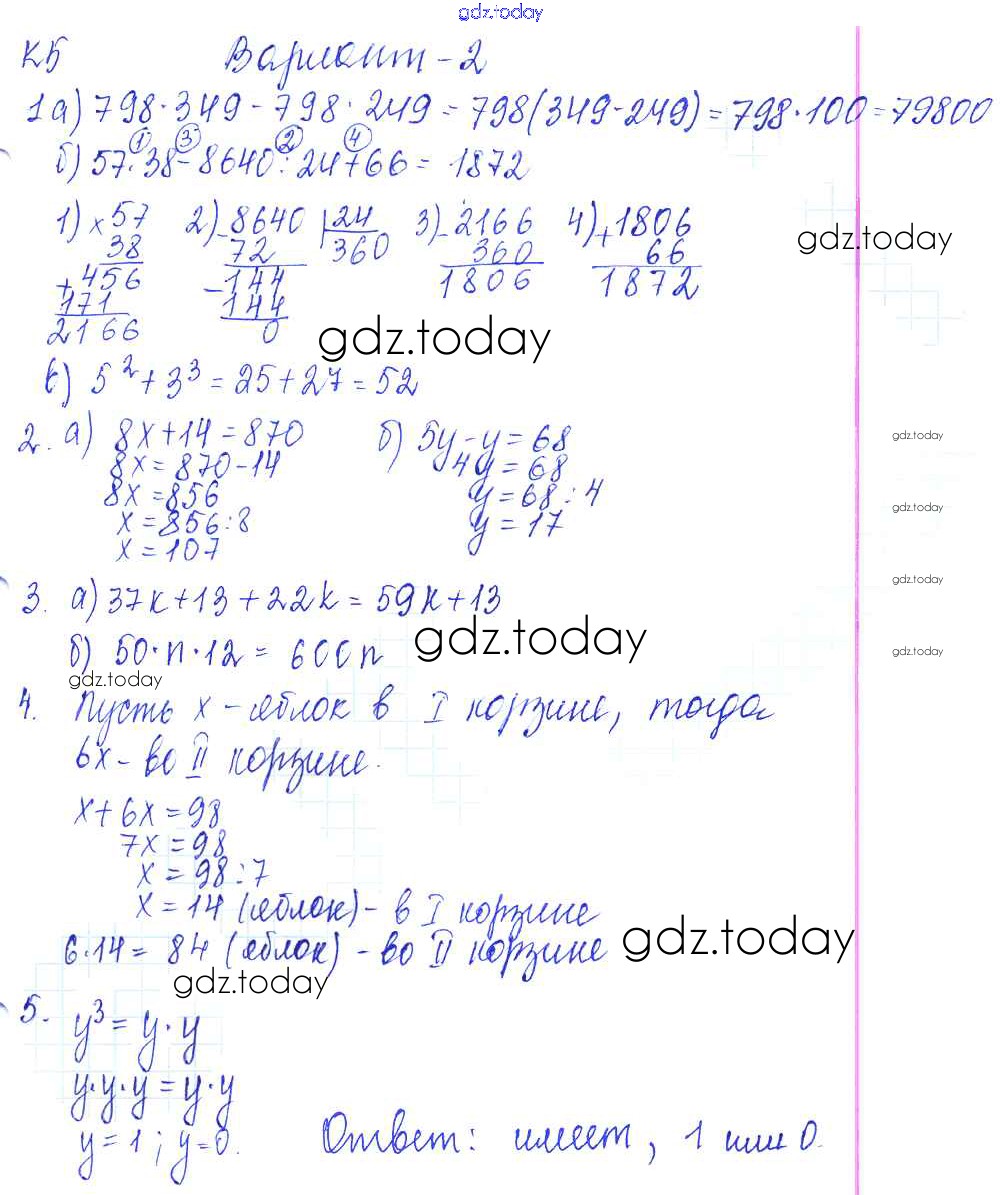 gdz.today
К5 Вариант - 2
1 а) 798 · 349 - 798 · 249 = 798(349 - 249) = 798 · 100 = 79800
1 3 2 4
б) 57 · 38 - 8640 : 24 + 66 = 1872
1) × 57 2) - 8640 | 24 3) - 2166 4) + 1806
38 72 360 360 66
+ 456 - 144 1806 1872
171 144
2166 0
gdz.today
gdz.today
в) 5² + 3³ = 25 + 27 = 52
2. а) 8x + 14 = 870 б) 5y - y = 68
8x = 870 - 14 4y = 68
8x = 856 y = 68 : 4
x = 856 : 8 y = 17
x = 107
gdz.today
gdz.today
gdz.today
gdz.today
3. а) 37k + 13 + 22k = 59k + 13
б) 50 · n · 12 = 600n
gdz.today
gdz.today
4. Пусть x - яблок в I корзине, тогда
6x - во II корзине.
x + 6x = 98
7x = 98
x = 98 : 7
x = 14 (яблок) - в I корзине
6 · 14 = 84 (яблок) - во II корзине
gdz.today
gdz.today
5. y³ = y · y
y · y · y = y · y
y = 1 ; y = 0. Ответ: имеет, 1 или 0.